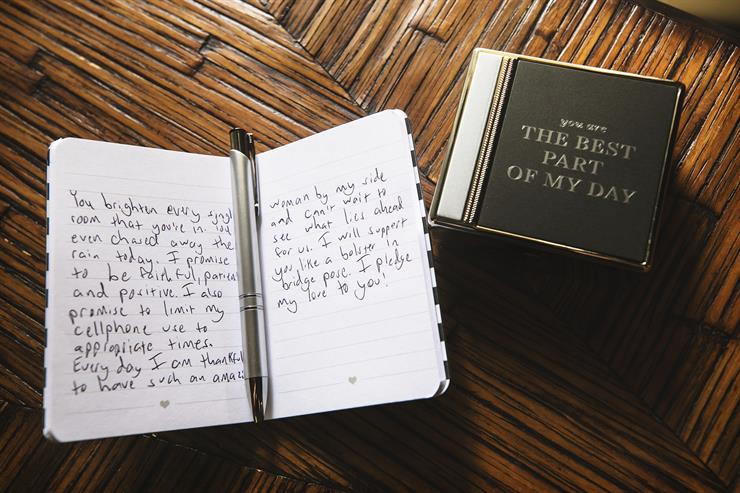 You brighten every singl
room that you're in. You
even chased away the
rain today. I promise
to be faithful, patien
and positive. I also
promise to limit my
cellphone use to
appropriate times.
Every day I am thankful
to have such an amazi
woman by my side
and can't wait to
see what lies ahead
for us. I will support
you like a bolster in
bridge pose. I pledge
my love to you!
you are
THE BEST
PART
OF MY DAY